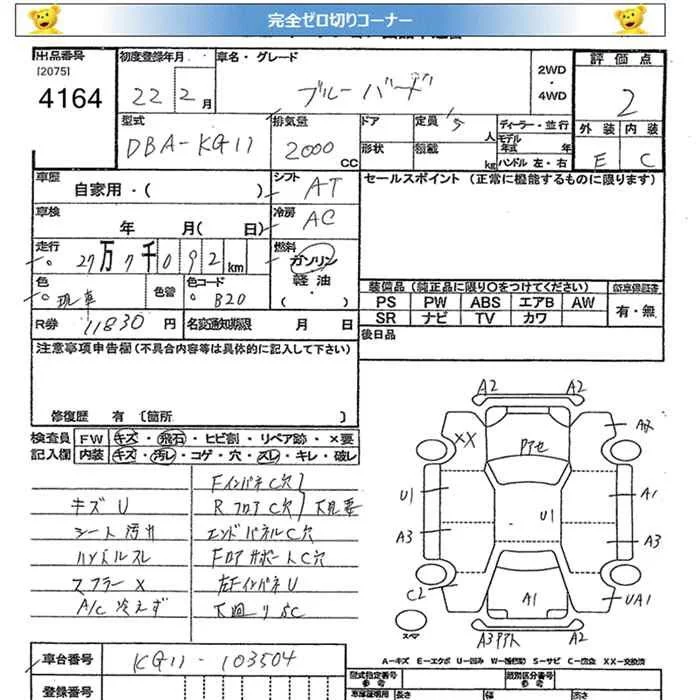 完全ゼロ切りコーナー
出品番号
[2075]
4164
初度登録年月
22年 2月
車名・グレード
ブルーバード
2WD
・
4WD
評価点
2
外装 内装
E C
型式
DBA-KG11
排気量
2000 CC
ドア
形状
定員 5人
積載 kg
ディーラー・並行
モデル年式 年
ハンドル 左・右
車歴
自家用・( )
シフト
AT
冷房
AC
車検
年 月( 日)
走行
27万7千092km
燃料
ガソリン
軽油
・
色
現車
色替
色コード
B20
R券 11830円
名変通知期限 月 日
セールスポイント (正常に機能するものに限ります)
装備品(純正品に限り○をつけてください)
PS PW ABS エアB AW
SR ナビ TV カワ
新車保証書
有・無
後日品
注意事項申告欄(不具合内容等は具体的に記入して下さい)
修復歴 有 〔箇所 〕
検査員記入欄
FW キズ・飛石・ヒビ割・リペア跡・×要
内装 キズ・汚レ・コゲ・穴・スレ・キレ・破レ
キズU
シート汚れ
ハンドルスレ
マフラーX
A/C 冷えず
FインパネC穴
RフロアC穴
下見要
エンドパネルC穴
FロアサポートC穴
左FインパネU
下廻りSC
A2 A2
XX
A2
Pアセ
U1
U1
A1
A3
A3
C2
A1
UA1
スペア
A3
A2
A-キズ E-エクボ U-凹み W-補修跡 S-サビ C-腐食 XX-交換
車台番号
KG11-103504
登録番号
型式指定番号
参考
類別区分番号
参考
車庫証明用
長さ
幅
高さ